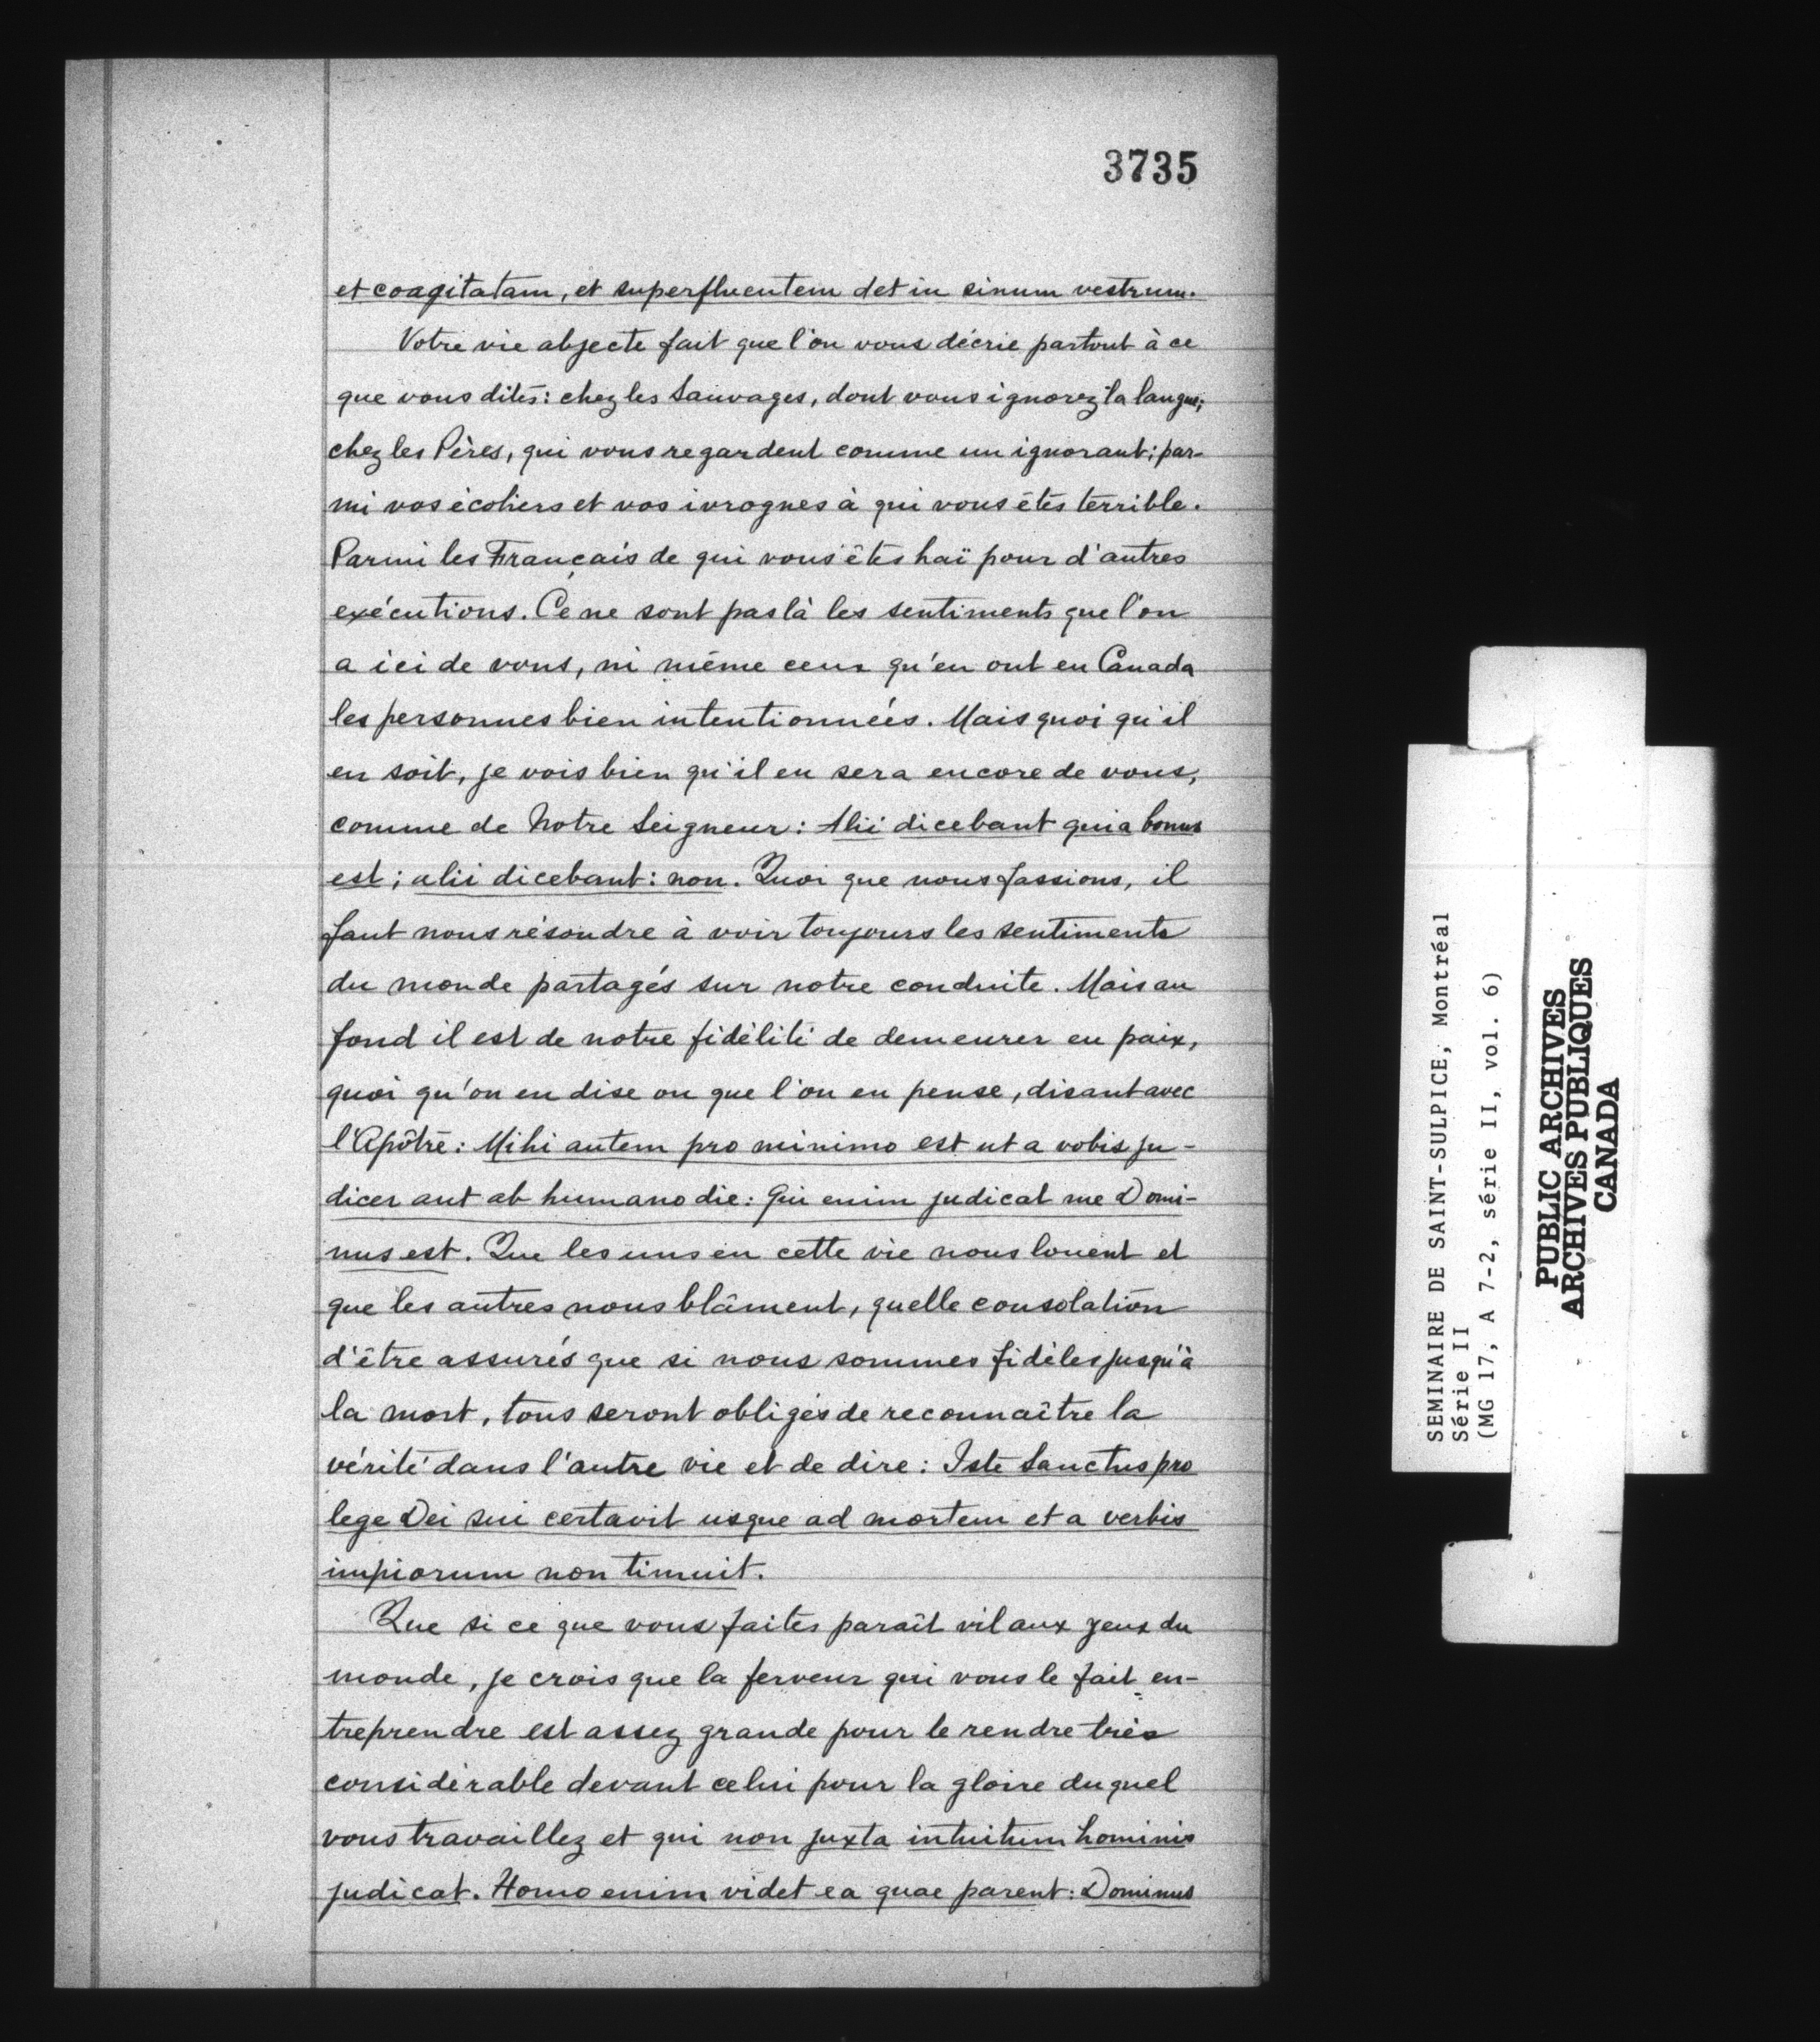 3735
et coagitatam, et superfluentem det in sinum vestrum.
Votre vie abjecte fait que l'on vous décrie partout à ce
que vous dites: chez les Sauvages, dont vous ignorez la langue;
chez les Pères, qui vous regardent comme un ignorant; par-
mi vos écoliers et vos ivrognes à qui vous êtes terrible.
Parmi les Français de qui vous êtes haï pour d'autres
exécutions. Ce ne sont pas là les sentiments que l'on
a ici de vous, ni même ceux qu'en ont en Canada
les personnes bien intentionnées. Mais quoi qu'il
en soit, je vois bien qu'il en sera encore de vous,
comme de Notre Seigneur: Alii dicebant quia bonus
est; alii dicebant: non. Quoi que nous fassions, il
faut nous résoudre à voir toujours les sentiments
du monde partagés sur notre conduite. Mais au
fond il est de notre fidélité de demeurer en paix,
quoi qu'on en dise ou que l'on en pense, disant avec
l'Apôtre: Mihi autem pro minimo est ut a vobis ju-
dicer aut ab humano die: Qui enim judicat me Domi-
nus est. Que les uns en cette vie nous louent et
que les autres nous blâment, quelle consolation
d'être assurés que si nous sommes fidèles jusqu'à
la mort, tous seront obligés de reconnaître la
vérité dans l'autre vie et de dire: Iste Sanctus pro
lege Dei sui certavit usque ad mortem et a verbis
impiorum non timuit.
Que si ce que vous faites paraît vil aux yeux du
monde, je crois que la ferveur qui vous le fait en-
treprendre est assez grande pour le rendre très
considérable devant celui pour la gloire duquel
vous travaillez et qui non juxta intuitum hominis
judicat. Homo enim videt ea quae parent: Dominus
SEMINAIRE DE SAINT-SULPICE, Montréal
Série II
(MG 17, A 7-2, série II, vol. 6)
PUBLIC ARCHIVES
ARCHIVES PUBLIQUES
CANADA